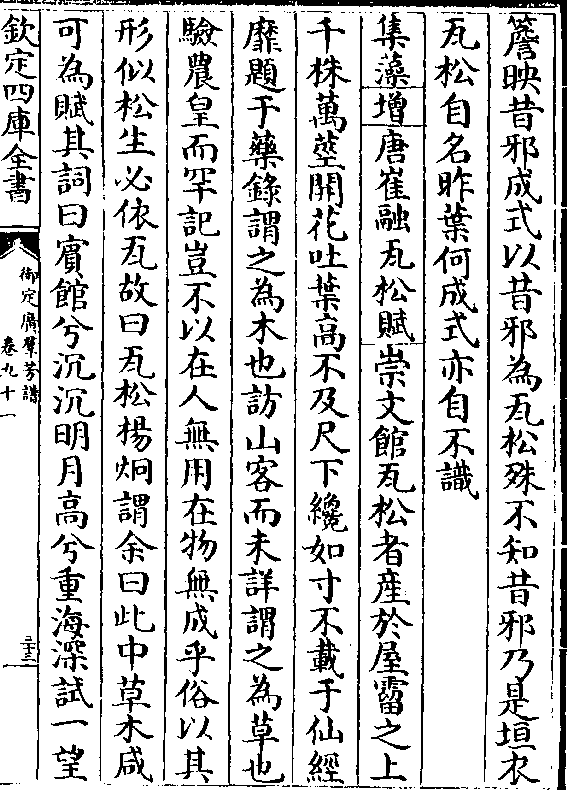 簷映昔邪成式以昔邪為瓦松殊不知昔邪乃是垣衣
瓦松自名昨葉何成式亦自不識
集藻增唐崔融瓦松賦崇文館瓦松者産於屋霤之上
千株萬莖開花吐葉高不及尺下纔如寸不載于仙經
靡題于藥錄謂之為木也訪山客而未詳謂之為草也
驗農皇而罕記豈不以在人無用在物無成乎俗以其
形似松生必依瓦故曰瓦松楊炯謂余曰此中草木咸
可為賦其詞曰賓館兮沉沉明月高兮重海深試一望
欽定四庫全書
御定廣羣芳譜
卷九十一
二十三